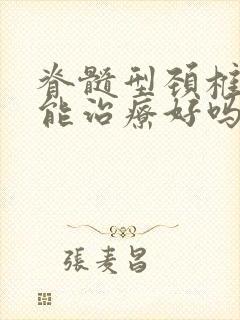 脊髓型颈椎
能治療好吗
張麦昌